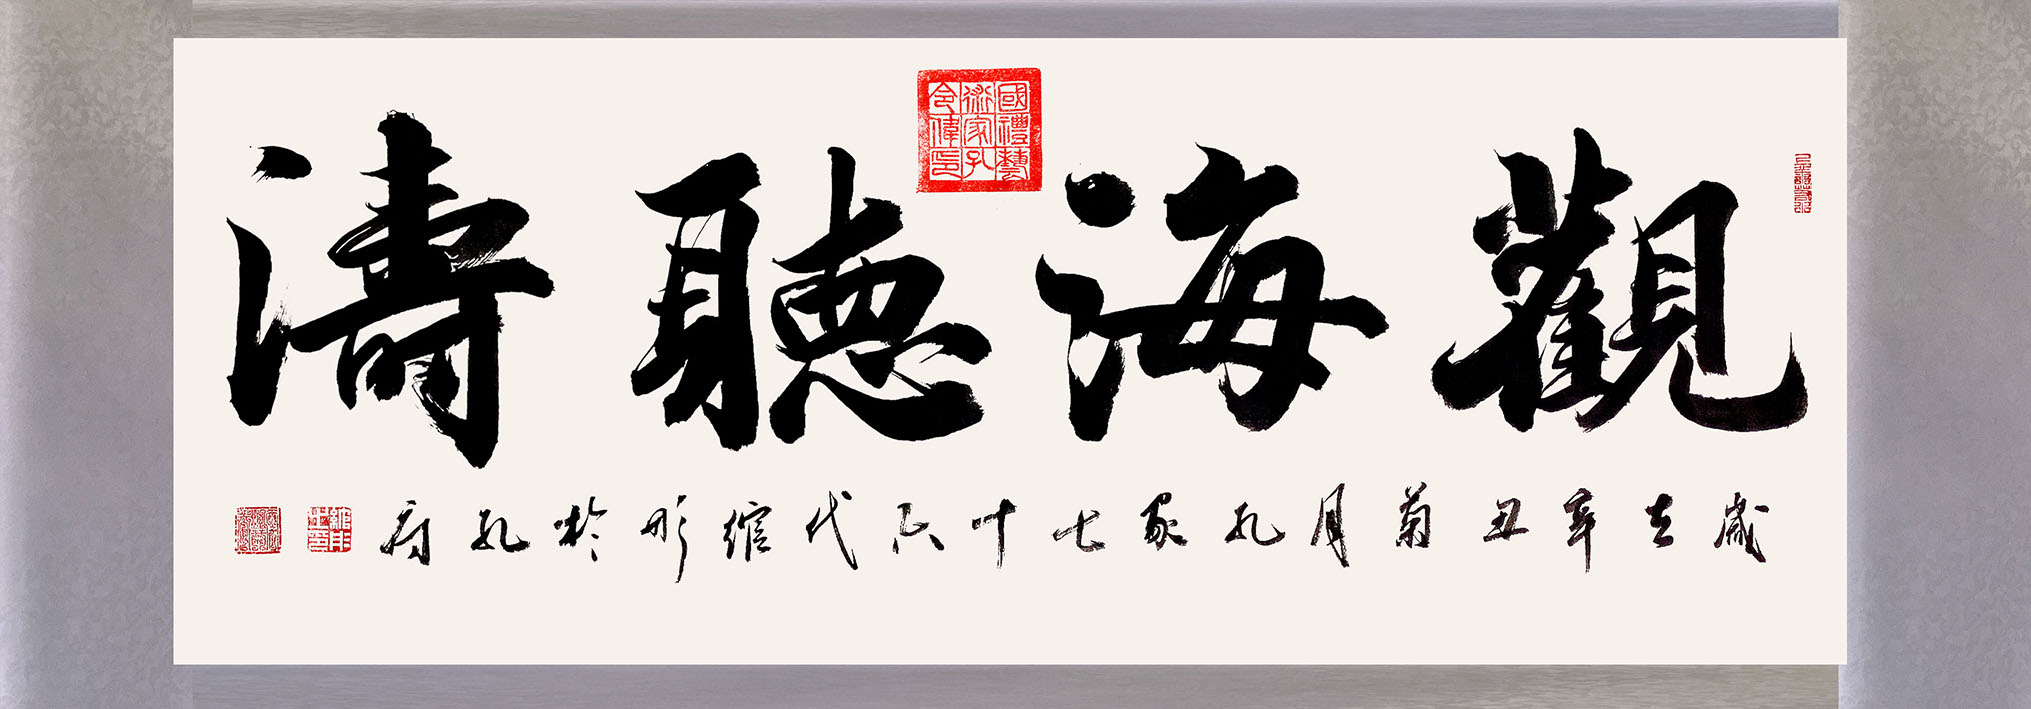 觀海聽濤
國禮藝術家孔令偉印
歲在辛丑菊月孔家七十六代綰彤於孔府